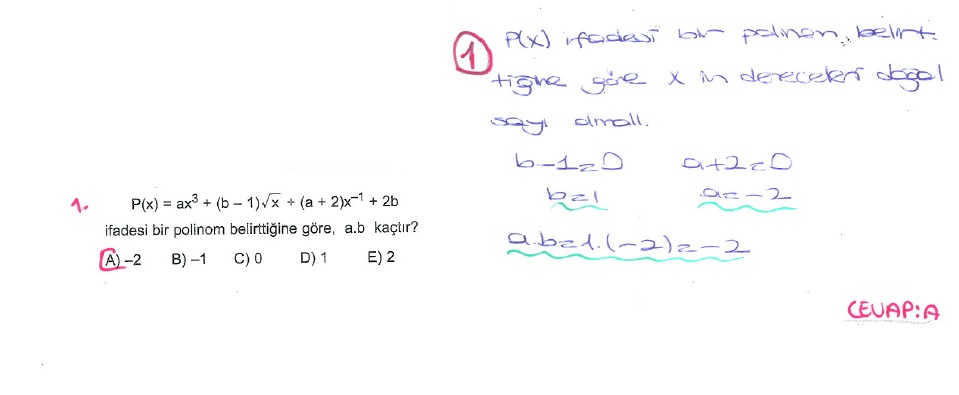 1.
P(x) = ax³ + (b – 1)√x + (a + 2)x⁻¹ + 2b
ifadesi bir polinom belirttiğine göre, a.b kaçtır?
A) –2 B) –1 C) 0 D) 1 E) 2
1
P(x) ifadesi bir polinom belirt-
tiğine göre x in dereceleri doğal
sayı olmalı.
b-1=0 a+2=0
b=1 a=-2
a.b=1.(-2)=-2
CEVAP:A